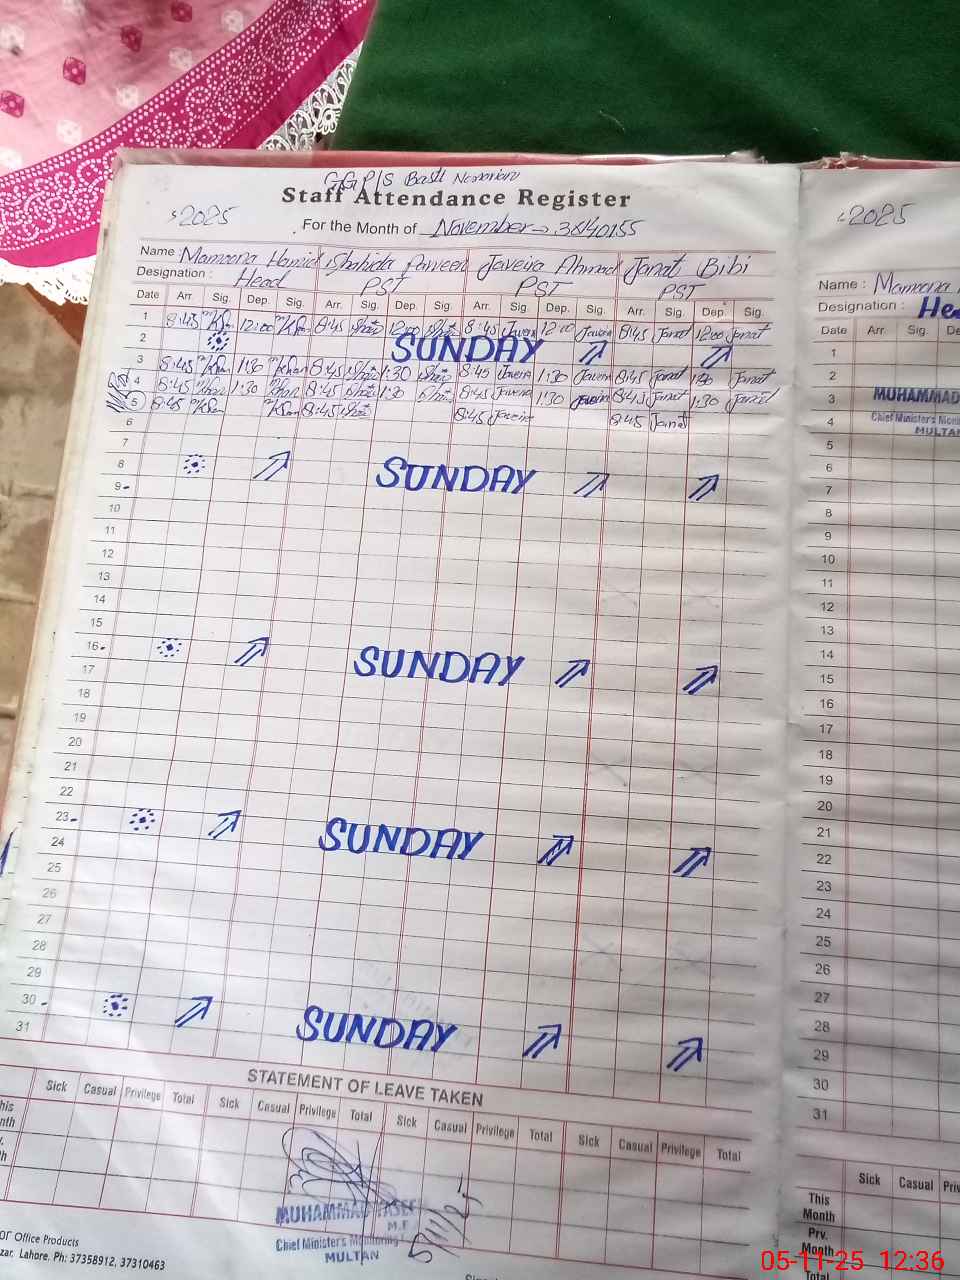 GGP/S Basti
Staff Attendance Register
2025
For the Month of November → 36140155
Name : Mamoona Hamid Shahida Parveen Javeira Ahmad Janat Bibi
Designation : Head PST PST PST
Date Arr. Sig. Dep. Sig. Arr. Sig. Dep. Sig. Arr. Sig. Dep. Sig. Arr. Sig. Dep. Sig.
1 8:45 12:00 8:45 12:00 8:45 Javeira 12:00 Javeira 8:45 Janat 12:00 Janat
2 SUNDAY
3 8:45 1:30 Khan 8:45 1:30 8:45 Javeira 1:30 Javeira 8:45 Janat 1:30 Janat
4 8:45 1:30 Khan 8:45 1:30 8:45 Javeira 1:30 Javeira 8:45 Janat 1:30 Janat
5 8:45 8:45 8:45 Javeira 8:45 Janat
6
7
8
9 SUNDAY
10
11
12
13
14
15
16 SUNDAY
17
18
19
20
21
22
23 SUNDAY
24
25
26
27
28
29
30 SUNDAY
31
STATEMENT OF LEAVE TAKEN
Sick Casual Privilege Total Sick Casual Privilege Total Sick Casual Privilege Total Sick Casual Privilege Total
MUHAMMAD
M.E
Chief Minister's Monitoring
MULTAN
5/11/25
Office Products
Lahore. Ph: 37358912, 37310463
2025
Name : Mamoona
Designation : He
Date Arr. Sig. De
1
2
3
4
5
6
7
8
9
10
11
12
13
14
15
16
17
18
19
20
21
22
23
24
25
26
27
28
29
30
31
MUHAMMAD
Chief Minister's Moni
MULTAN
Sick Casual Privi
This
Month
Prv.
Month
Total
05-11-25 12:36